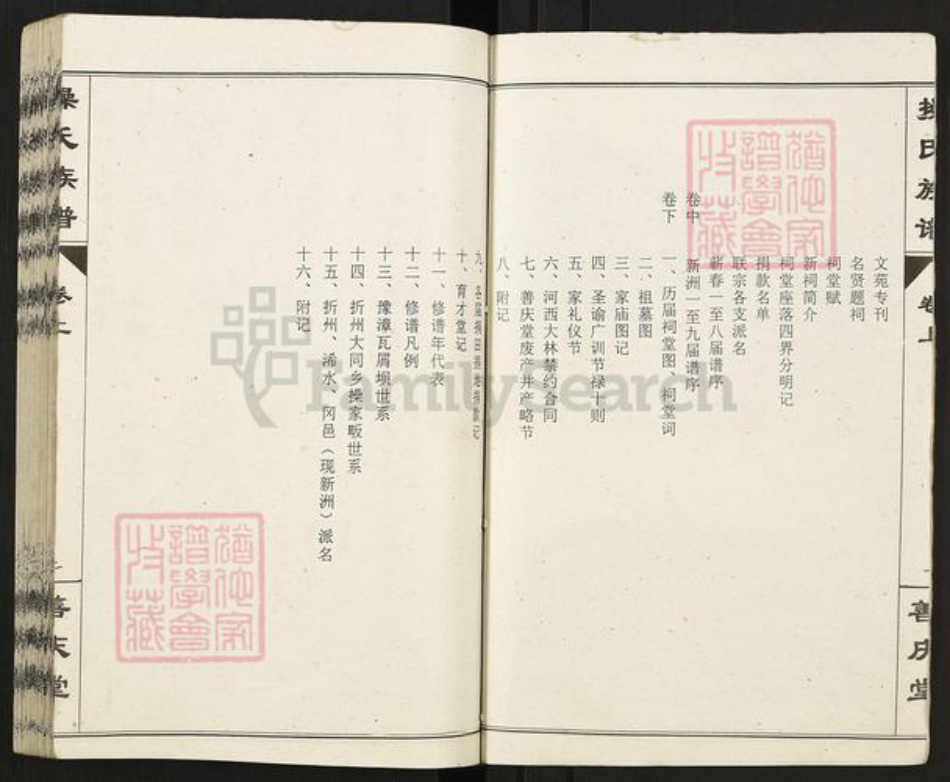 操氏族谱
卷上
一
善庆堂
文苑专刊
名贤题祠
祠堂赋
新祠简介
祠堂座落四界分明记
捐款名单
联宗各支派名
蕲春一至八届谱序
卷中
新洲一至九届谱序
卷下
一、历届祠堂图、祠堂词
二、祖墓图
三、家庙图记
四、圣谕广训节禄十则
五、家礼仪节
六、河西大林禁约合同
七、善庆堂废产并产略节
八、附记
九、各届捐田捐地捐款记
十、育才堂记
十一、修谱年代表
十二、修谱凡例
十三、豫漳瓦屑坝世系
十四、折州大同乡操家畈世系
十五、折州、浠水、冈邑（现新洲）派名
十六、附记
操氏族谱
卷上
善庆堂
FamilySearch
犹他家谱学会收藏
犹他家谱学会收藏